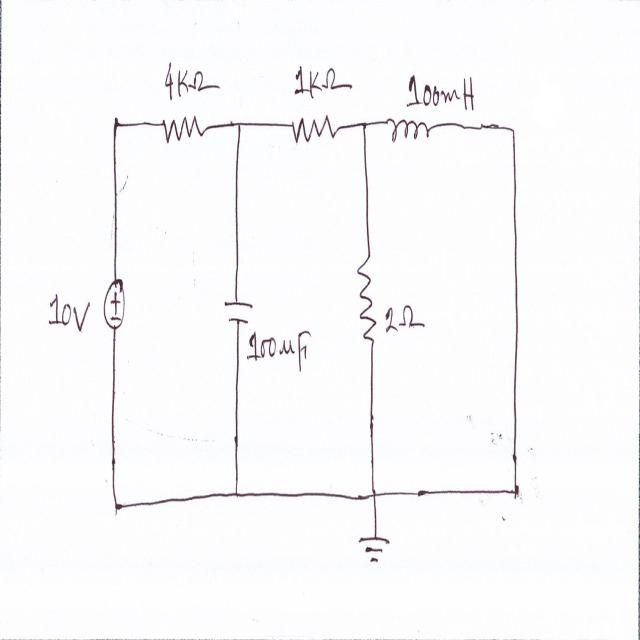 4KΩ
1KΩ
100mH
10V
+
-
100μF
2Ω